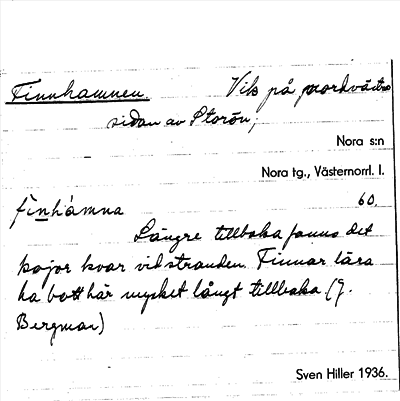 Finnhamnen. Vik på nordvästra
sidan av Storön;
Nora s:n
Nora tg., Västernorrl. l.
finhámna 60.
Längre tillbaka fanns det
kojor kvar vid stranden. Finnar lära
ha bott här mycket långt tillbaka. (J.
Bergman)
Sven Hiller 1936.